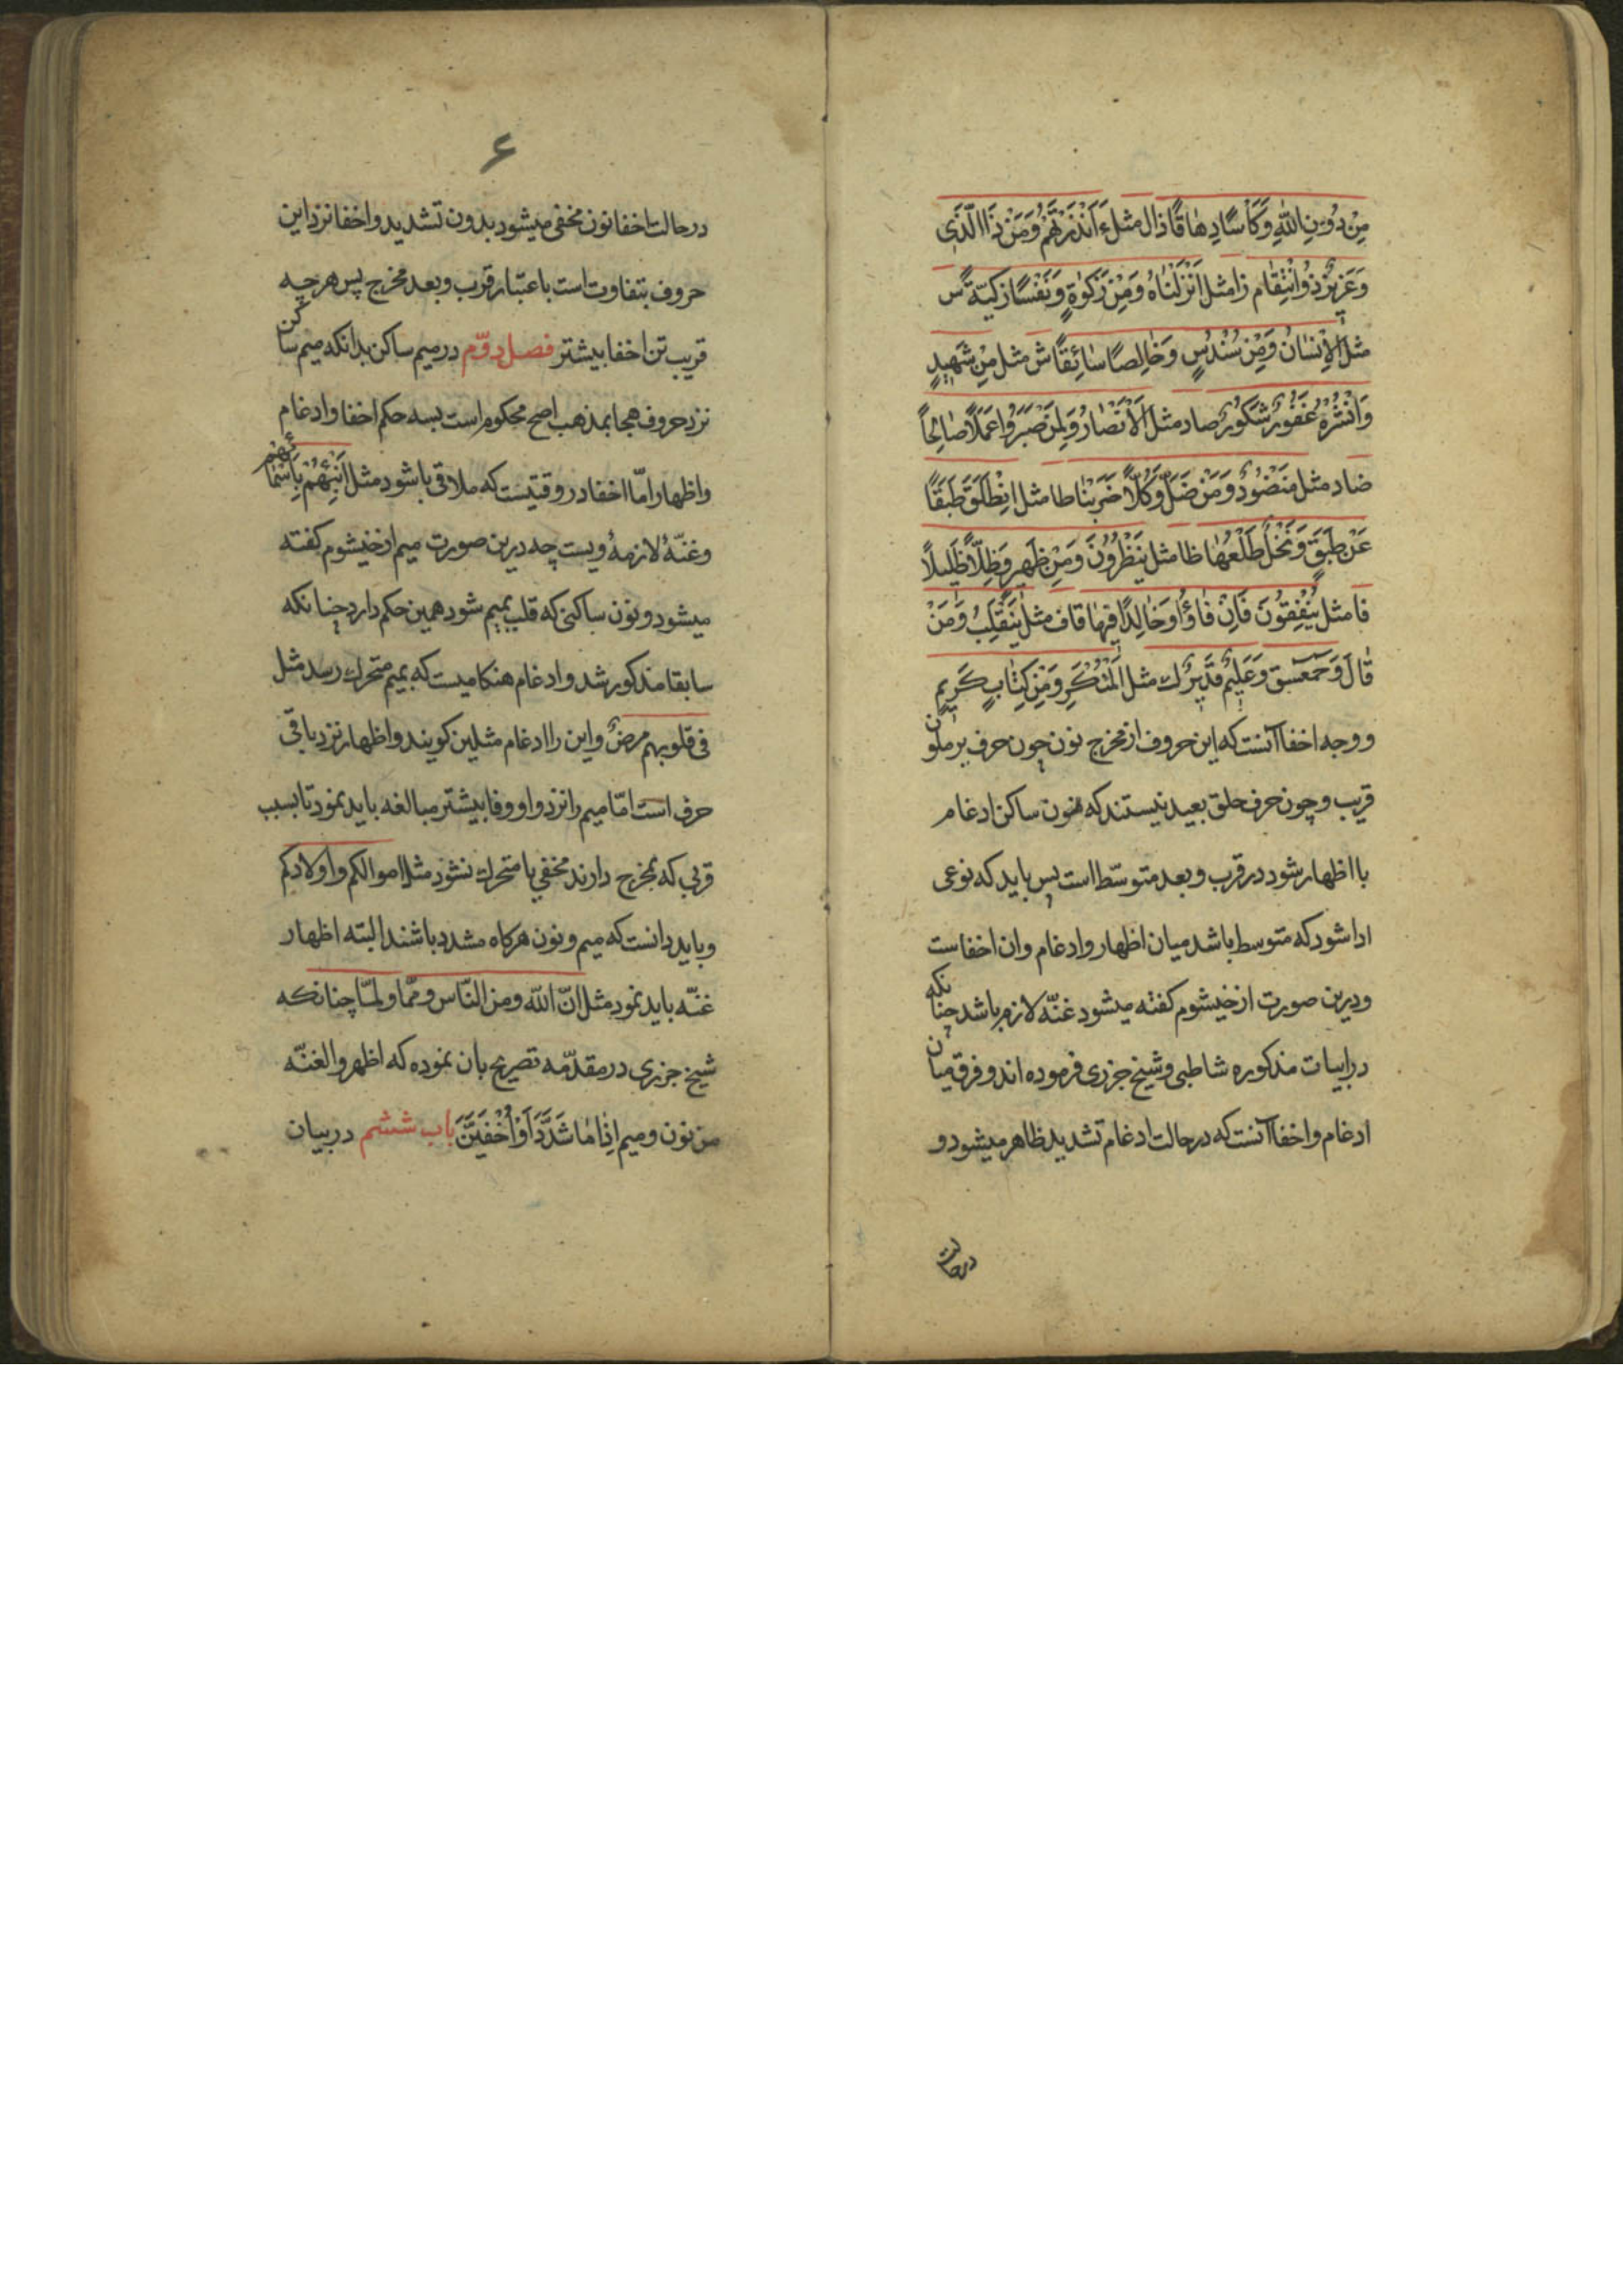 مِنْ دُوْنِ اللّٰهِ وَكَأْسًا دِهٰاقًا ذال مثل ءَاَنْذَرْتَهُمْ وَمَنْ ذَا الَّذَى
وَعَزِيْزٌ ذُو انْتِقٰام زا مثل اَنْزَلْنٰاهُ وَمِنْ زَكٰوةٍ وَنَفْسًا زَكِيَّةً س
مثل الْاِنْسٰان وَمِنْ سُنْدُسٍ وَخٰالِصًا سٰائِقًا ش مثل مِنْ شَهِيْدٍ
وَانْشُرْهُ غَفُوْرٌ شَكُوْرٌ صاد مثل الْاَنْصٰارُ وَلِمَنْ صَبَرَ وَاعَمَلًا صٰالِحًا
ضاد مثل مَنْضُوْدٌ وَمَنْ ضَلَّ وَكُلًّا ضَرَبْنٰا طا مثل انْطَلَقَ طَبَقًا
عَنْ طَبَقٍ وَنَخْلٌ طَلْعُهٰا ظا مثل يَنْظُرُوْنَ وَمِنْ ظَهِيرٍ وَظِلًّا ظَلِيلًا
فا مثل يُنْفِقُوْنَ فَاِنْ فٰاؤُا وَخٰالِدًا فِيهٰا قاف مثل يَنْقَلِبُ وَمَنْ
قٰالَ وَحمعسق وَعَلِيْمٌ قَدِيْرٌ ك مثل الْمُنْكَرِ وَمِنْ كِتٰابٍ كَرِيمٍ
و وجه اخفا آنست كه اين حروف از مخرج نون چون حرف يرملون
قريب و چون حرف حلق بعيد نيستند كه نون ساكن ادغام
با اظهار شود در قرب و بعد متوسّط است پس بايد كه نوعى
ادا شود كه متوسط باشد ميان اظهار و ادغام وان اخفاست
و درين صورت از خيشوم كفته ميشود غنّه لازم باشد چنانكه
در ابيات مذكوره شاطبى و شيخ جزرى فرموده اند و فرق ميان
ادغام و اخفا آنست كه در حالت ادغام تشديد ظاهر ميشود و
در حالت
۶
در حالت اخفا نون مخفى ميشود بدون تشديد و اخفا نزد اين
حروف بتفاوت است باعتبار قرب و بعد مخرج پس هر چه
قريب تر اخفا بيشتر فصل دوّم در ميم ساكن بدانكه ميم ساكن
نزد حروف هجا بمذهب اصح محكوم است بسه حكم اخفا و ادغام
و اظهار امّا اخفا در وقتيست كه ملاقى با شود مثل اَنْبِئْهُمْ بِاَسْمٰائِهِمْ
و غنّهٔ لازمهٔ ويست چه درين صورت ميم از خيشوم كفته
ميشود و نون ساكنى كه قلب بميم شود همين حكم دارد چنانكه
سابقا مذكور شد و ادغام هنكاميست كه بميم متحرك رسد مثل
فى قلوبهم مرضٌ و اين را ادغام مثلين كويند و اظهار نزد باقى
حرف است امّا ميم را نزد واو و فا بيشتر مبالغه بايد نمود تا بسبب
قربى كه بمخرج دارند مخفى يا متحرك نشود مثل اموالكم واولادكم
و بايد دانست كه ميم و نون هركاه مشدد باشند البته اظهار
غنّه بايد نمود مثل انّ اللّه ومن النّاس وممّا ولمّا چنانكه
شيخ جزرى در مقدّمه تصريح بان نموده كه اظهر والغنّه
من نون وميم اِذٰا مٰا شَدَّدَا وَاُخْفِيَنَّ باب ششم در بيان